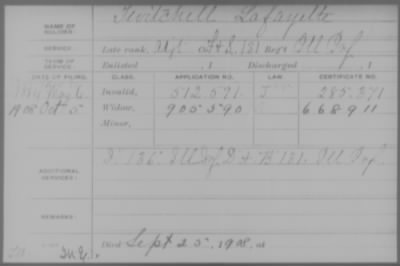 NAME OF SOLDIER: Twitchell Lafayette
SERVICE: Late rank, F & S, 131 Reg't Ill Inf.
TERM OF SERVICE: Enlisted , 1 Discharged , 1
DATE OF FILING. CLASS. APPLICATION NO. LAW. CERTIFICATE NO.
Invalid, 512.571 285.371
1908 Oct 5 Widow, 905.590 668.911
Minor,
ADDITIONAL SERVICES: 136 Ill Inf. D & H 131 Ill Inf.
REMARKS:
Died Sept 25, 1908, at